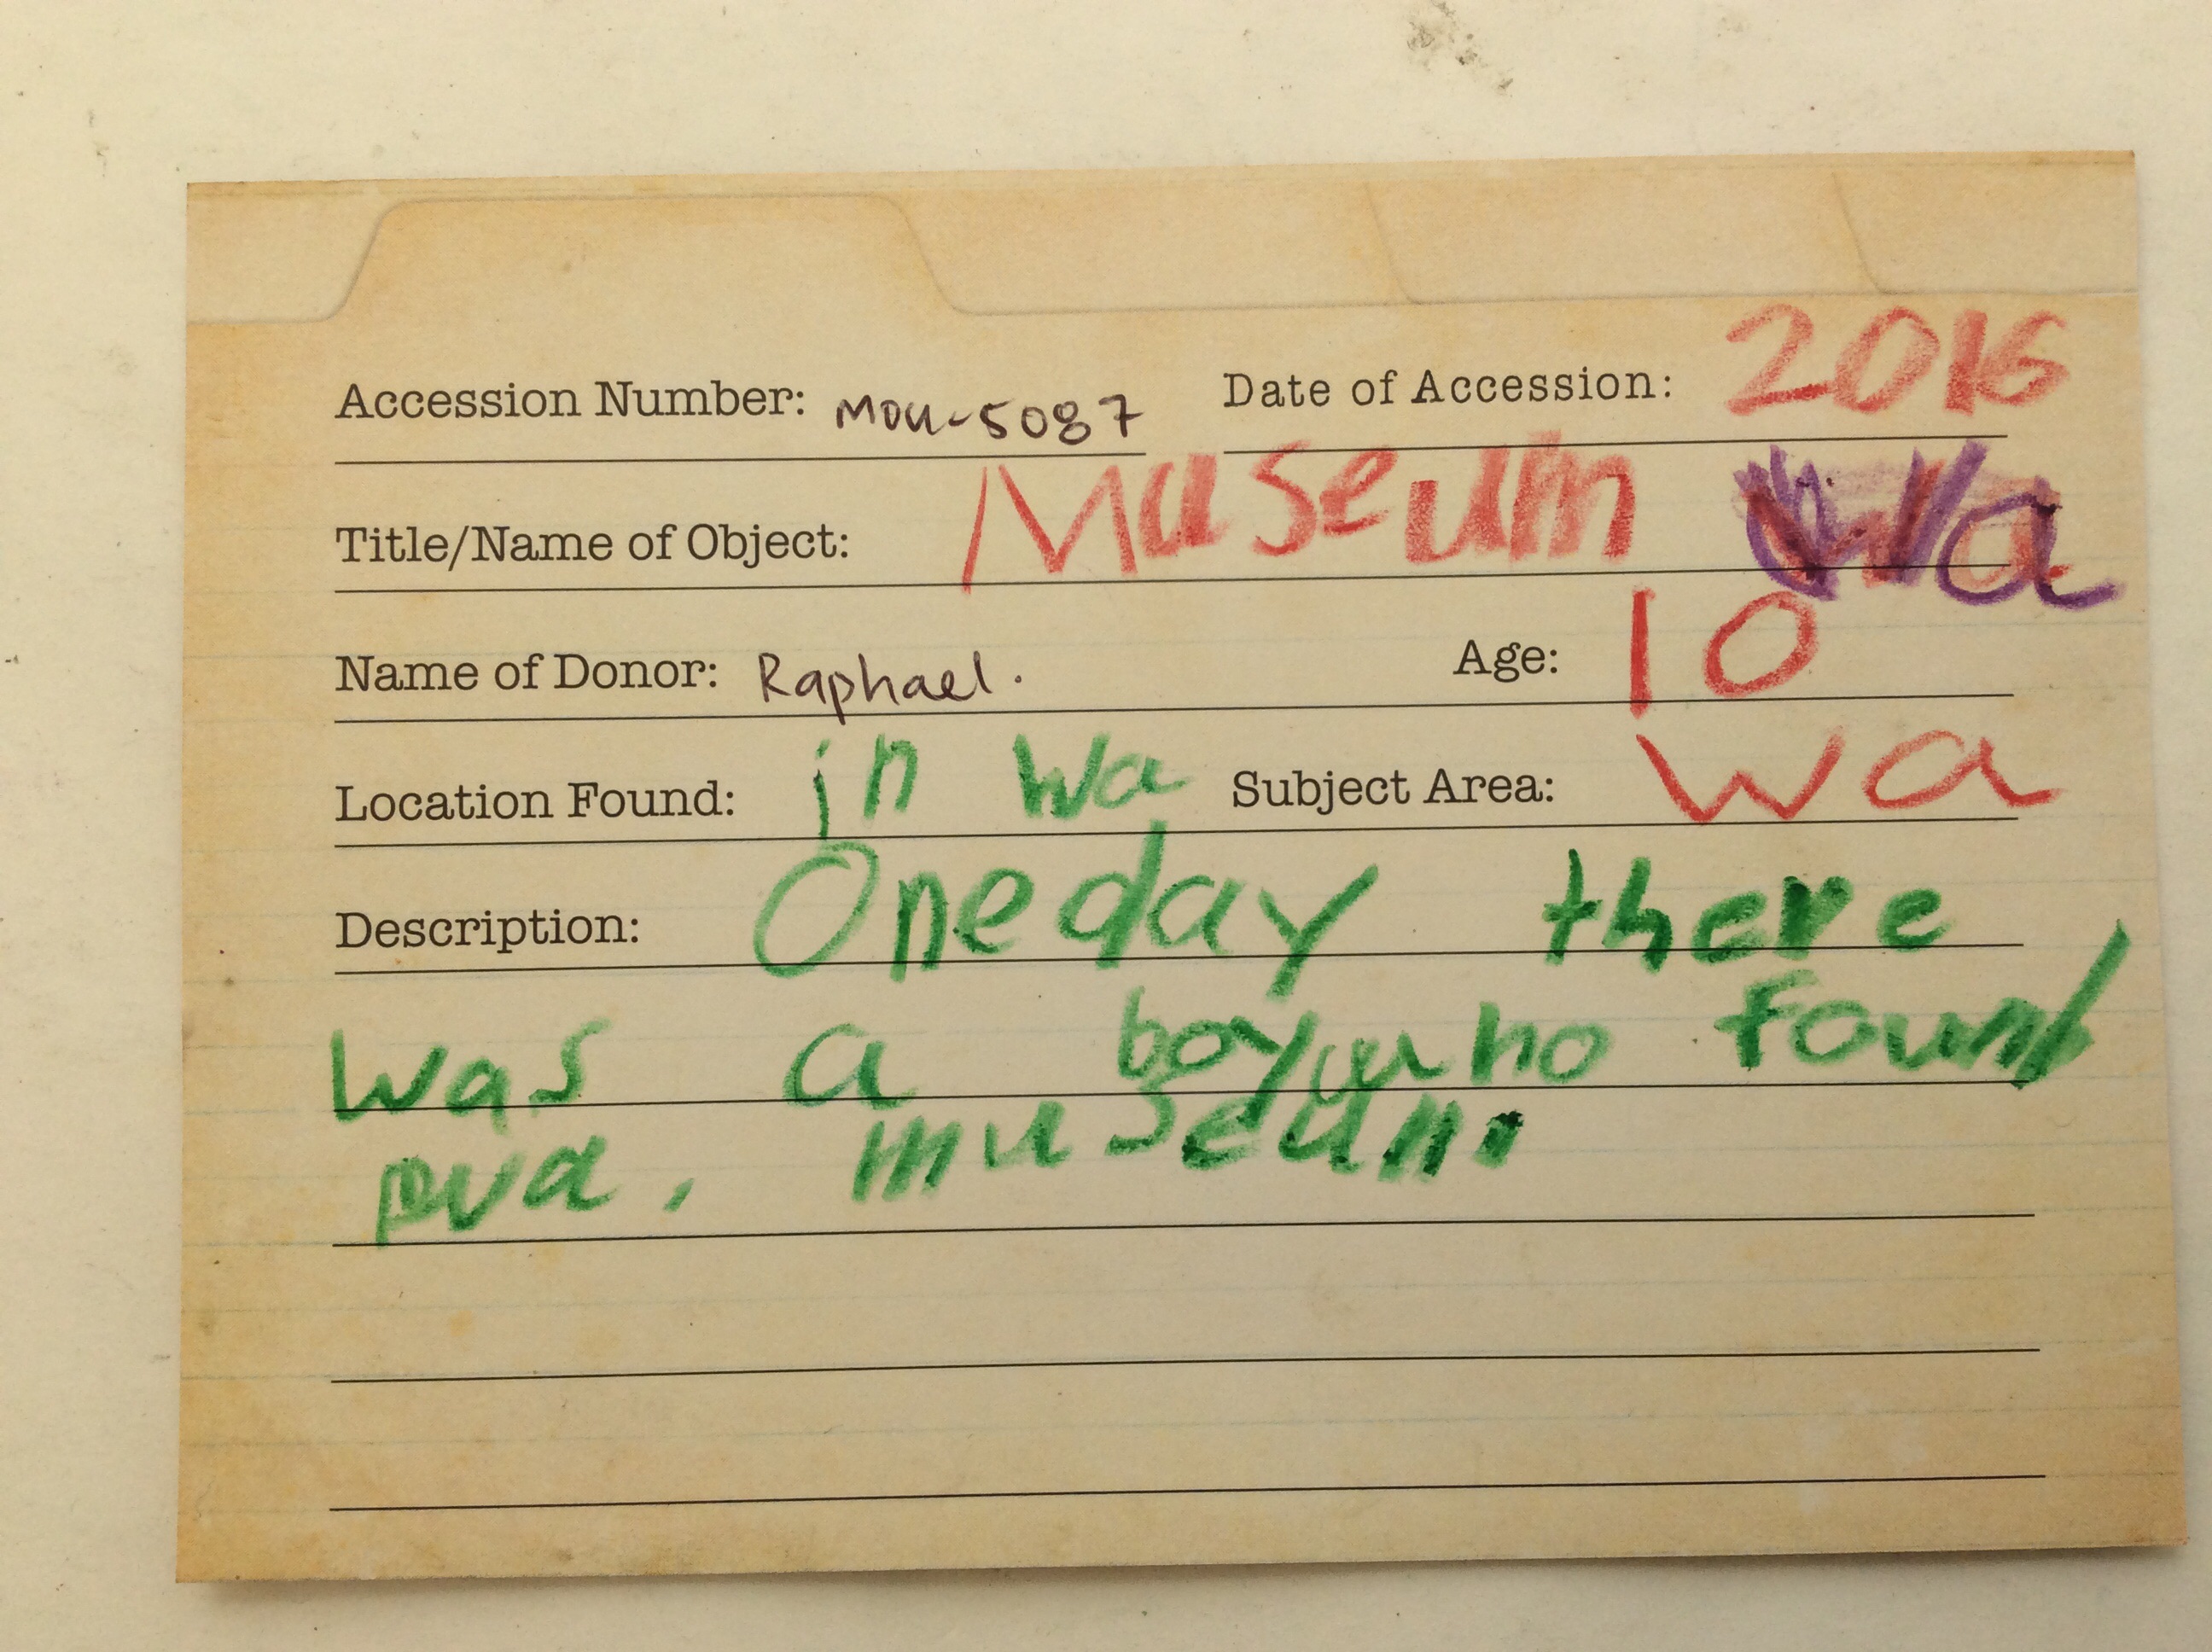 Accession Number: MOU-5087 Date of Accession: 2016
Title/Name of Object: Museum Wa
Name of Donor: Raphael. Age: 10
Location Found: in Wa Subject Area: Wa
Description: One day there
was a boy who found
museum.